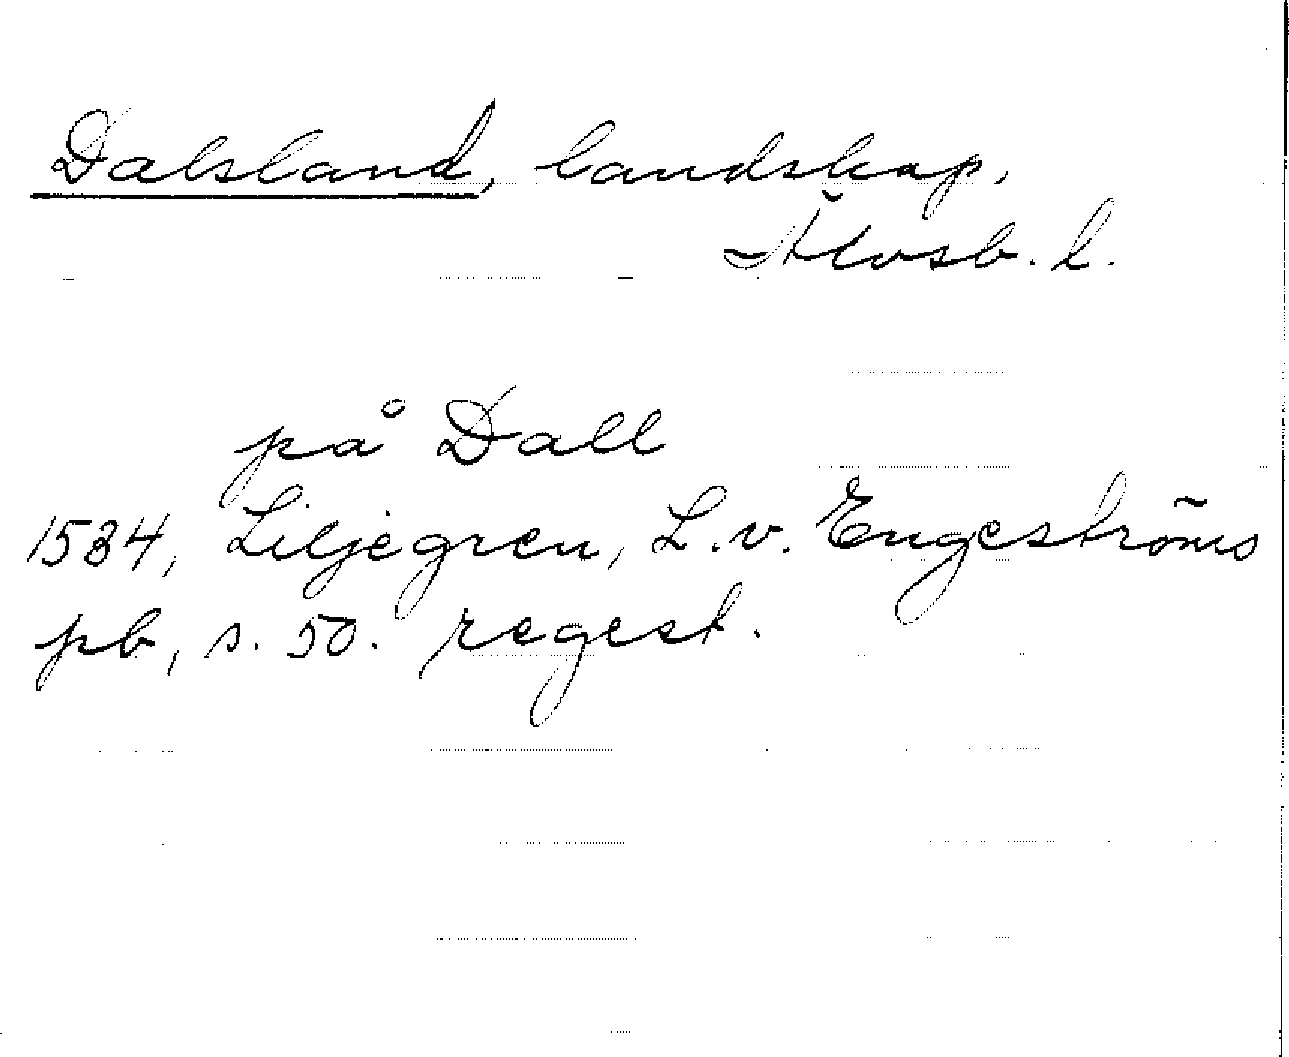 Dalsland, landskap.
Älvsb. l.
på Dall
1534, Liljegren, L. v. Engeströms
pb, s. 50. regest.